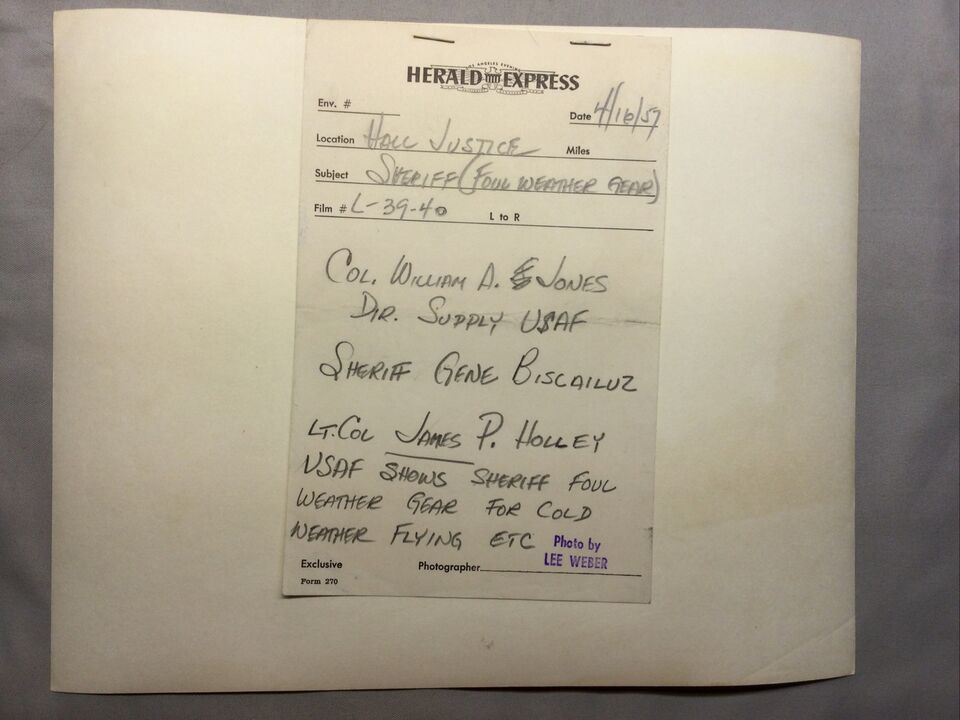 LOS ANGELES EVENING
HERALD EXPRESS
Env. #
Date 4/16/57
Location Hall Justice Miles
Subject Sheriff (Foul Weather Gear)
Film # L-39-40 L to R
Col. William A. Jones
Dir. Supply USAF
Sheriff Gene Biscailuz
Lt. Col James P. Holley
USAF shows Sheriff Foul
Weather Gear for Cold
Weather Flying etc
Photo by
LEE WEBER
Exclusive Photographer
Form 270